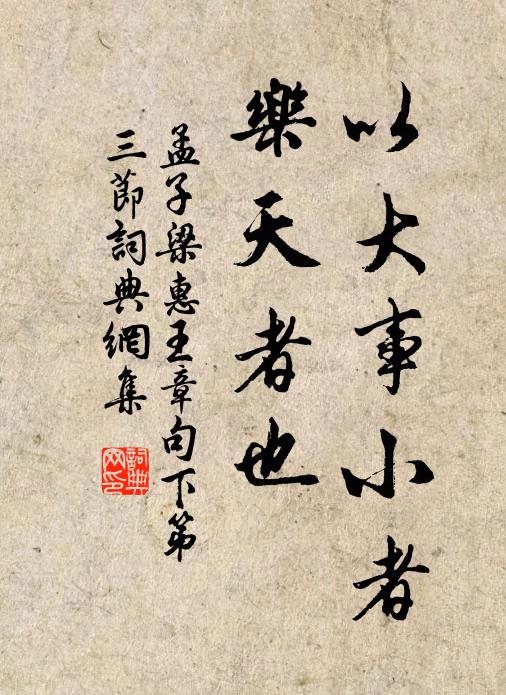 以大事小者
樂天者也
孟子梁惠王章句下第
三節詞典網集
詞典
网印